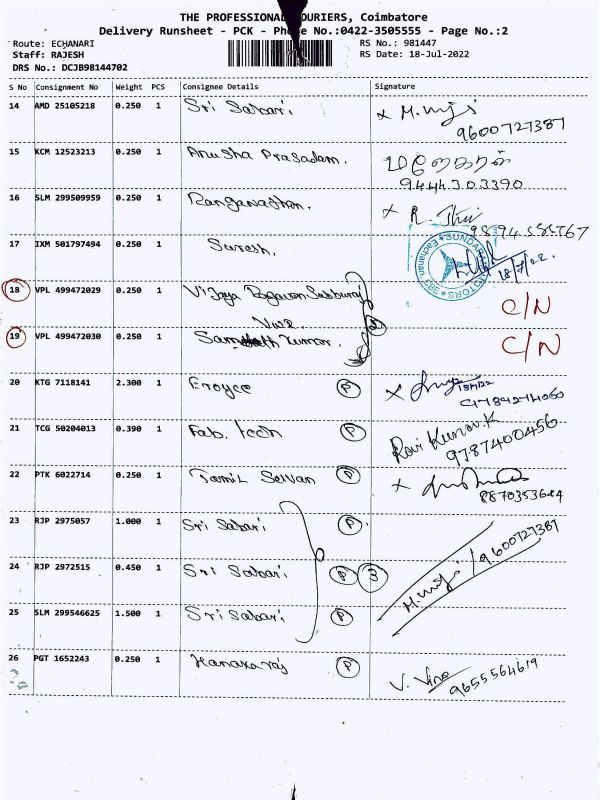 THE PROFESSIONAL COURIERS, Coimbatore
Delivery Runsheet - PCK - Phone No.:0422-3505555 - Page No.:2
Route: ECHANARI
Staff: RAJESH
DRS No.: DCJB98144702
RS No.: 981447
RS Date: 18-Jul-2022
S No Consignment No Weight PCS Consignee Details Signature
14 AMD 25105218 0.250 1 Sri Sabari
9600727387
15 KCM 12523213 0.250 1 Anusha Prasadam.
மனோகரன்
9444303390
16 SLM 299509959 0.250 1 Ranganathan.
17 IXM 501797494 0.250 1 Suresh.
18/7/22
18 VPL 499472029 0.250 1 Vijaya C/N
19 VPL 499472030 0.250 1 Kumar. C/N
20 KTG 7118141 2.300 1 Eroyce P
21 TCG 50204013 0.390 1 Fab. Tech P Ravi Kumar.K
9787400456
22 PTK 6022714 0.250 1 Tamil Selvan P
23 RJP 2975057 1.000 1 Sri Sabari P
24 RJP 2972515 0.450 1 Sri Sabari P 3
9600727387
25 SLM 299546625 1.500 1 Sri Sabari P
26 PGT 1652243 0.250 1 Kanakaraj P V. Vino
9655564619